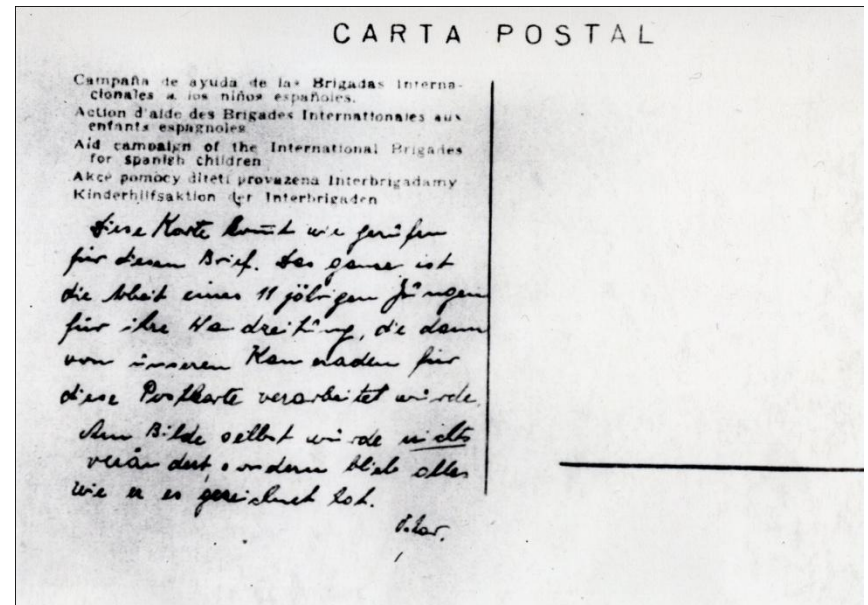 CARTA POSTAL
Campaña de ayuda de las Brigadas Interna-
cionales a los niños españoles.
Action d'aide des Brigades Internationales aux
enfants espagnoles
Aid campaign of the International Brigades
for spanish children
Akce pomocy diteti provazena Interbrigadamy
Kinderhilfsaktion der Interbrigaden
Diese Karte kommt wie gerufen
für diesen Brief. Das ganze ist
die Arbeit eines 11 jährigen Jungen
für ihre Wandzeitung, die dann
von unseren Kameraden für
diese Postkarte verarbeitet wurde.
Am Bilde selbst wurde nichts
verändert, sondern blieb alles
wie er es gezeichnet hat.